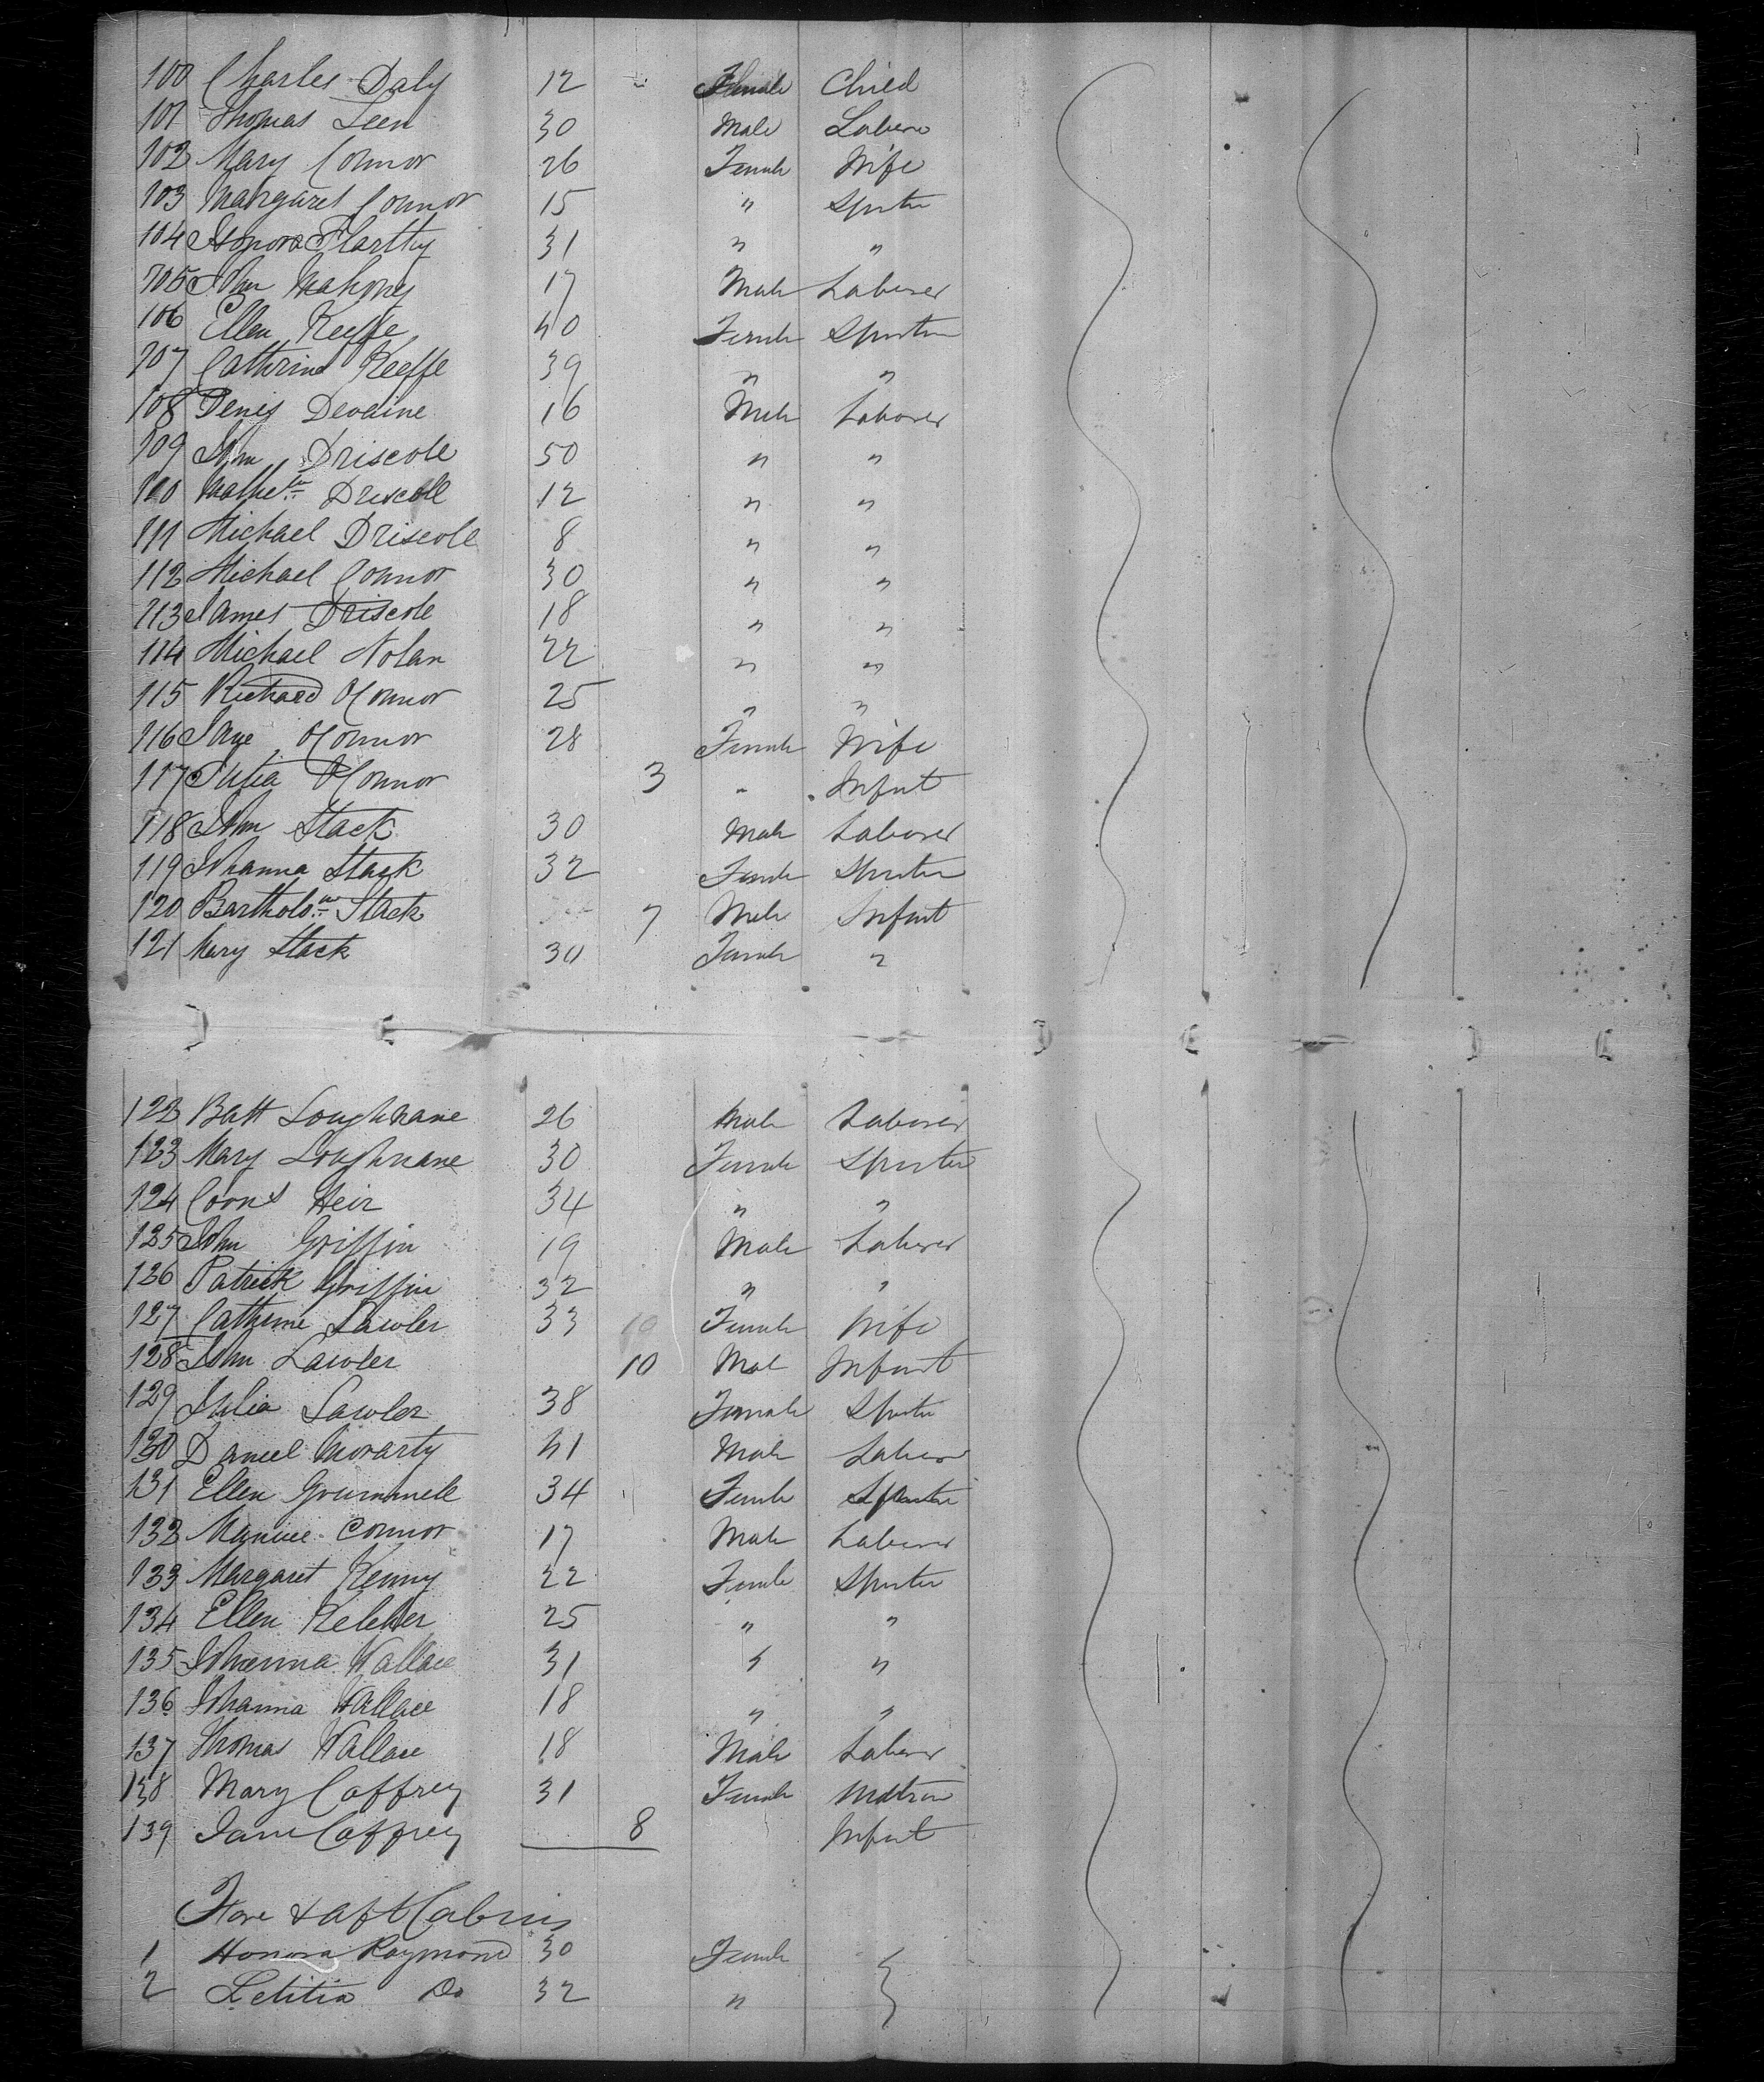 100 Charles Daly 12 " Female Child
101 Thomas Leen 30 Male Laborer
102 Mary Connor 26 Female Wife
103 Margaret Connor 15 " Spinster
104 Honora 31 " "
105 John Mahony 17 Male Laborer
106 Ellen Keeffe 40 Female Spinster
107 Catherine Keeffe 39 " "
108 Denis Devaine 16 Male Laborer
109 John Driscole 50 " "
110 Mathew Driscole 12 " "
111 Michael Driscole 8 " "
112 Michael Connor 30 " "
113 James Driscole 18 " "
114 Michael Nolan 22 " "
115 Richard O'Connor 25 " "
116 Jane O'Connor 28 Female Wife
117 Julia O'Connor 3 " Infant
118 John Stack 30 Male Laborer
119 Johanna Stack 32 Female Spinster
120 Bartholow Stack 7 Male Infant
121 Mary Stack 30 Female "
122 Batt Loughnane 26 Male Laborer
123 Mary Loughnane 30 Female Spinster
124 Heir 34 " "
125 John Griffin 19 Male Laborer
126 Patrick Griffin 32 " "
127 Catherine Lawler 33 10 Female Wife
128 John Lawler 10 Male Infant
129 Julia Lawler 38 Female Spinster
130 Daniel Morarty 41 Male Laborer
131 Ellen Grummell 34 Female Spinster
132 Connor 17 Male Laborer
133 Margaret Kenny 22 Female Spinster
134 Ellen Keleher 25 " "
135 Johanna Wallace 31 " "
136 Johanna Wallace 18 " "
137 Thomas Wallace 18 Male Laborer
138 Mary Caffrey 31 Female Matron
139 Jane Caffrey 8 Infant
Fore & Aft Cabins
1 Honora Raymond 30 Female
2 Letitia Do 32 "